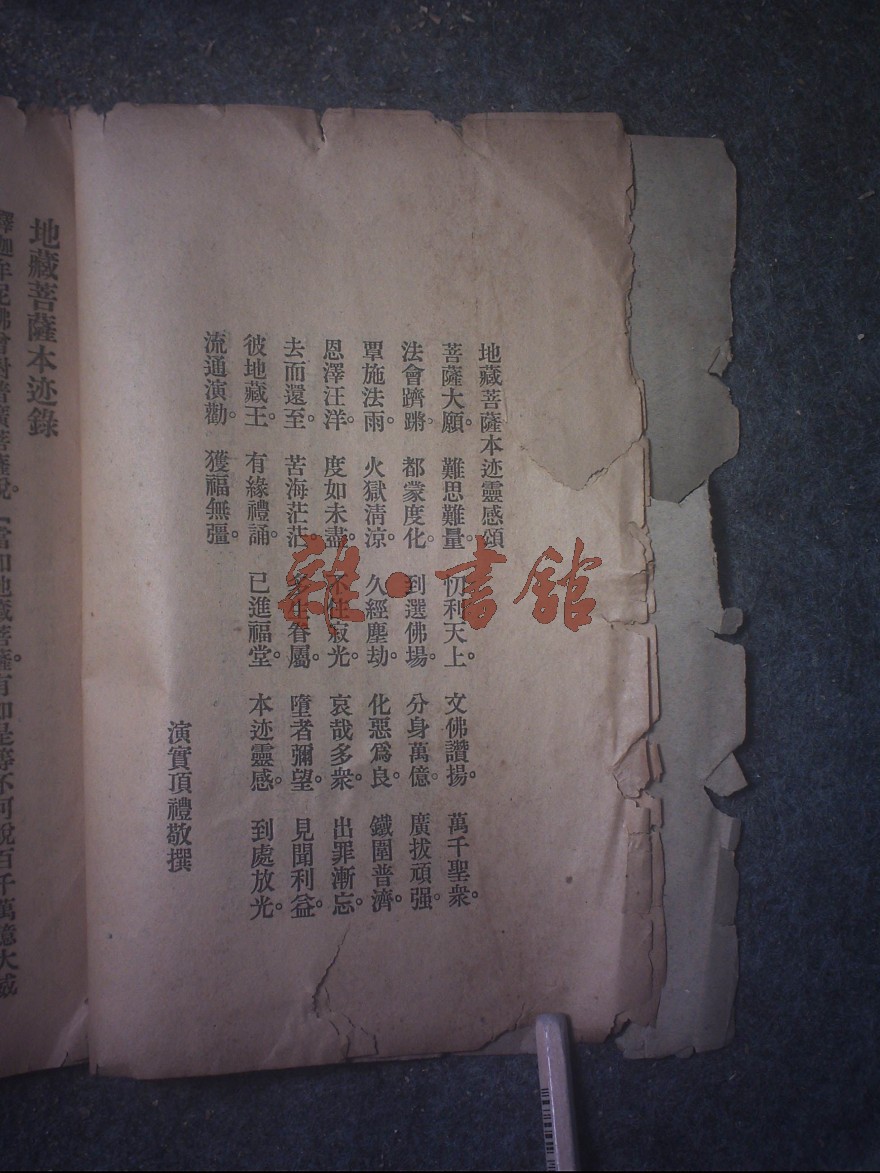 地藏菩薩本迹靈感頌
菩薩大願。難思難量。忉利天上。文佛讚揚。萬千聖衆。
法會躋蹌。都蒙度化。到選佛場。分身萬億。廣拔頑强。
覃施法雨。火獄清涼。久經塵劫。化惡爲良。鐵圍普濟。
恩澤汪洋。度如未盡。不住寂光。哀哉多衆。出罪漸忘。
去而還至。苦海茫茫。多生眷屬。墮者彌望。見聞利益。
彼地藏王。有緣禮誦。已進福堂。本迹靈感。到處放光。
流通演勸。獲福無彊。
演實頂禮敬撰
地藏菩薩本迹錄
釋迦牟尼佛會對普廣菩薩說。「當知地藏菩薩。有如是等不可說百千萬億大威
雜·書館